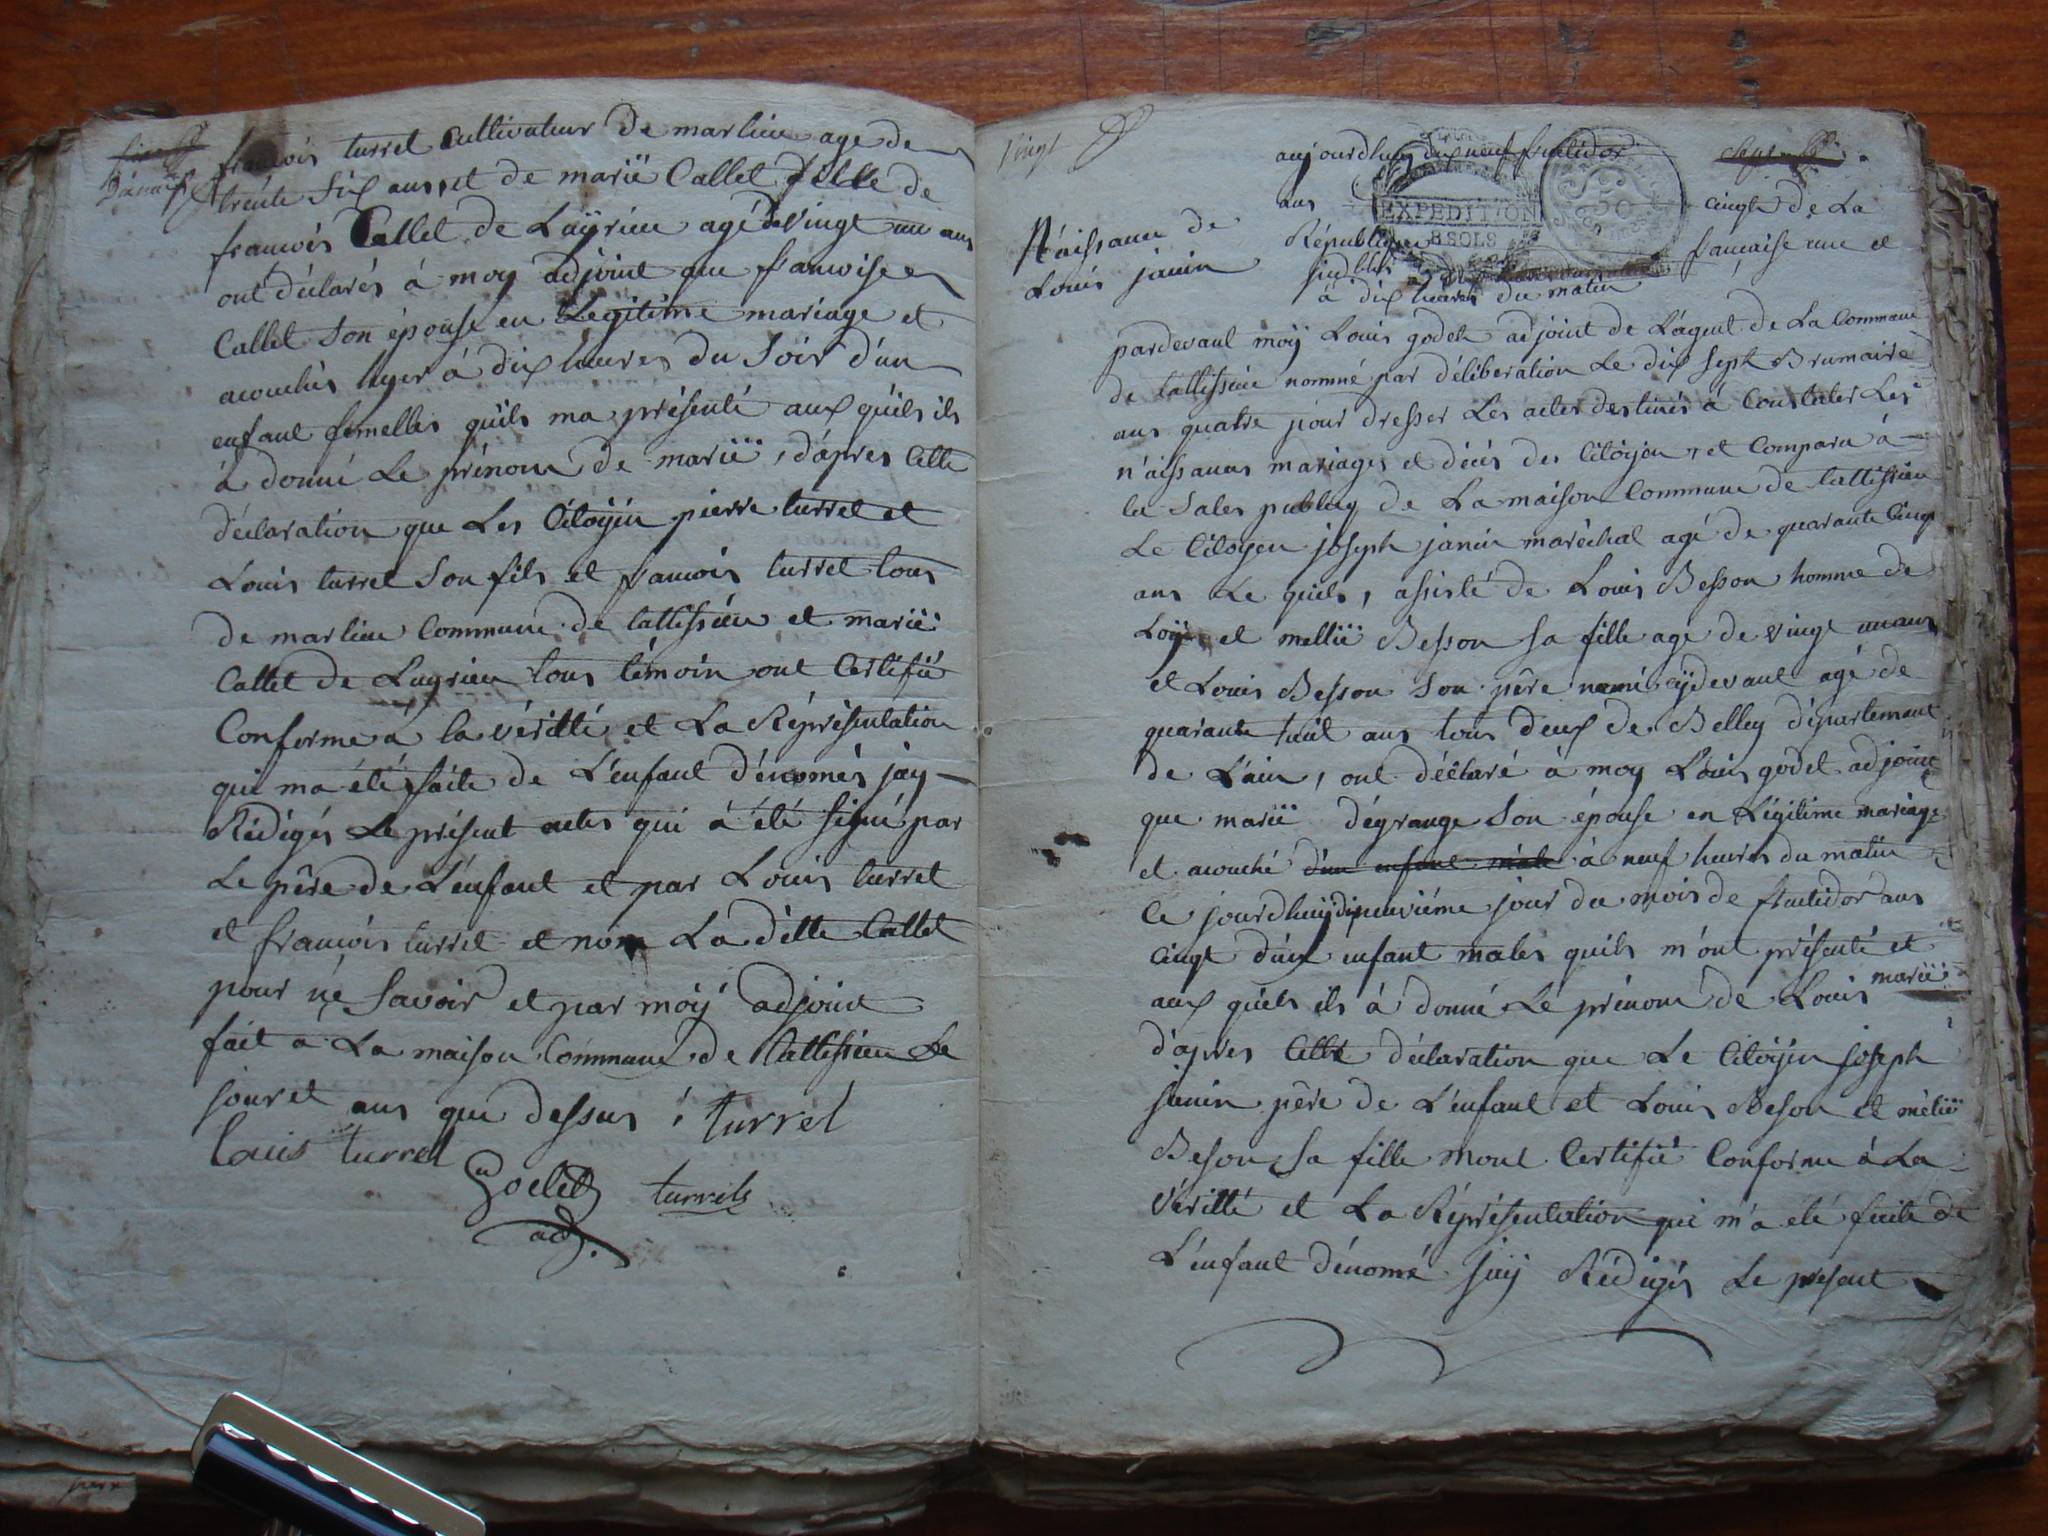 Dixneuf
francois turrel Cultivateur de marlieu age de
trente six ans, et de marië Callet fille de
francois Callet de Luÿrieu agé de vingt un ans
ont déclarés à moy adjoint que francoise
Callet son épouse en Légitime mariage et
acouchés hyer à dix heures du soir d'un
enfant femelles quils ma présenté aux quels ils
à donné Le prénom de marië, d'apres Cette
déclaration que Les Citoÿen pierre turrel et
Louis turrel son fils et francois turrel tous
de marlieu Commune de tallissieu et marië
Callet de Luyrieu tous témoin ont Certifié
Conforme à la véritté et La Réprésentation
qui ma été faite de L'enfant dénomés jay
Rédigés Le présent actes qui à été signé par
Le père de L'enfant et par Louis turrel
et francois turrel et non La ditte Callet
pour ne savoir et par moÿ adjoint
fait a La maison Commune de tallissieu Le
jour et ans que dessus turrel
Louis turrel
Godet turrels
adj.
Vingt
aujourdhuy dix neuf fructidor
ans cinqt de La
République francaise une et
EXPEDITION
8 SOLS
50
à dix heures du matin
Naissance de
Louis janin
pardevant moÿ Louis godet adjoint de L'agent de La Commune
de tallissieu nommé par délibération Le dix sept Brumaire
ans quatre pour dresser Les actes destinés à Constater Les
n'aissances mariages et décès des Citoyen, et Comparu à
la sales publicq de La maison Commune de tallissieu
Le Citoyen joseph janin maréchal agé de quarante Cinq
ans Le quels, assisté de Louis Besson homme de
Loÿ et mellië Besson sa fille age de vingt un ans
et Louis Besson son père nomé cydevant agé de
quarante huit ans tous deux de Belley département
de L'ain, ont déclaré à moy Louis godet adjoint
que marië dégrange son épouse en Légitime mariage
et acouché d'un enfant male à neuf heures du matin
Ce jourdhuÿ dixneuviéme jour du mois de fructidor ans
Cinqt d'un enfant males quils m'ont présenté et
aux quels ils à donné Le prénom de Louis marië
d'apres Cette déclaration que Le Citoÿen joseph
janin père de L'enfant et Louis Beson et mélië
Beson sa fille mont Certifié Conforme à La
véritté et La Réprésentation qui m'a été faite de
L'enfant dénomé jaÿ Rédigés Le présent